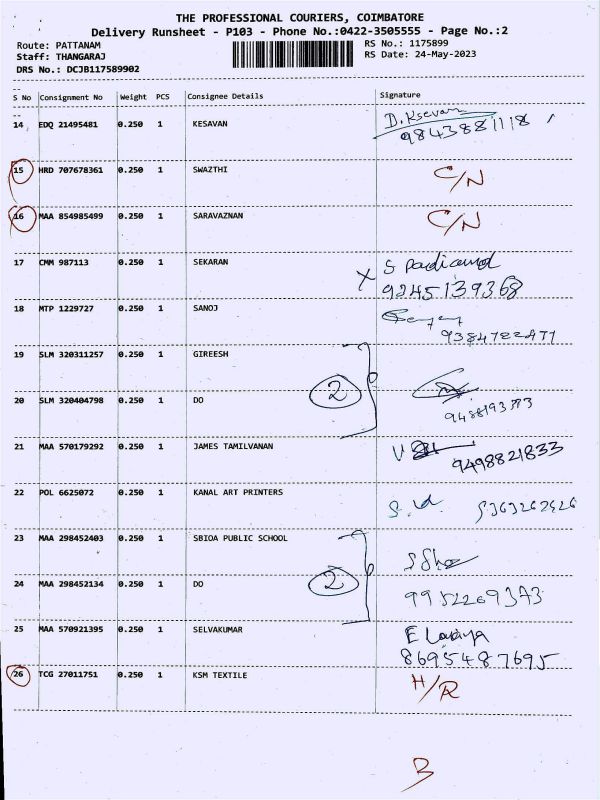 THE PROFESSIONAL COURIERS, COIMBATORE
Delivery Runsheet - P103 - Phone No.:0422-3505555 - Page No.:2
Route: PATTANAM RS No.: 1175899
Staff: THANGARAJ RS Date: 24-May-2023
DRS No.: DCJB117589902
S No Consignment No Weight PCS Consignee Details Signature
14 EDQ 21495481 0.250 1 KESAVAN D. Ksevan
9843881118
15 HRD 707678361 0.250 1 SWAZTHI C/N
16 MAA 854985499 0.250 1 SARAVAZNAN C/N
17 CMM 987113 0.250 1 SEKARAN X S
9245139368
18 MTP 1229727 0.250 1 SANOJ
19 SLM 320311257 0.250 1 GIREESH
2
20 SLM 320404798 0.250 1 DO
21 MAA 570179292 0.250 1 JAMES TAMILVANAN V
9498821833
22 POL 6625072 0.250 1 KANAL ART PRINTERS
23 MAA 298452403 0.250 1 SBIOA PUBLIC SCHOOL
2
24 MAA 298452134 0.250 1 DO 9952269373
25 MAA 570921395 0.250 1 SELVAKUMAR E
8695487695
26 TCG 27011751 0.250 1 KSM TEXTILE H/R
B